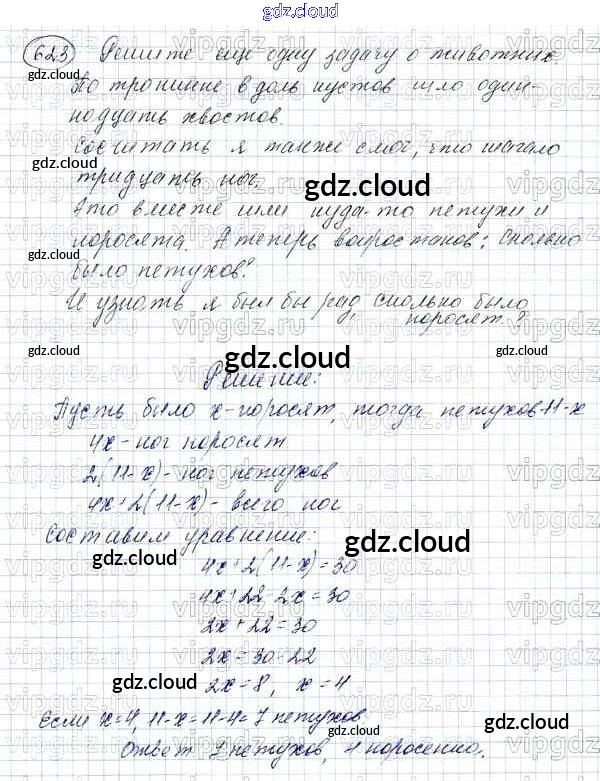 gdz.cloud
623 Решите еще одну задачу о животных
gdz.cloud
По тропинке вдоль кустов шло один-
надцать хвостов.
Сосчитать я также смог, что шагало
gdz.cloud
тридцать ног,
gdz.cloud
Это вместе шли куда-то петухи и
gdz.cloud
поросята. А теперь вопрос таков: Сколько
было петухов?
И узнать я был бы рад, сколько было
поросят?
gdz.cloud
gdz.cloud
gdz.cloud
gdz.cloud
Решение:
Пусть было x-поросят, тогда петухов 11-x
4x-ног поросят
2(11-x)-ног петухов
gdz.cloud
4x+2(11-x)-всего ног
Составим уравнение:
gdz.cloud
gdz.cloud
4x+2(11-x)=30
4x+22-2x=30
2x+22=30
2x=30-22
gdz.cloud
2x=8, x=4
Если x=4, 11-x=11-4=7 петухов
Ответ 7 петухов, 4 поросенка.
gdz.cloud
gdz.cloud